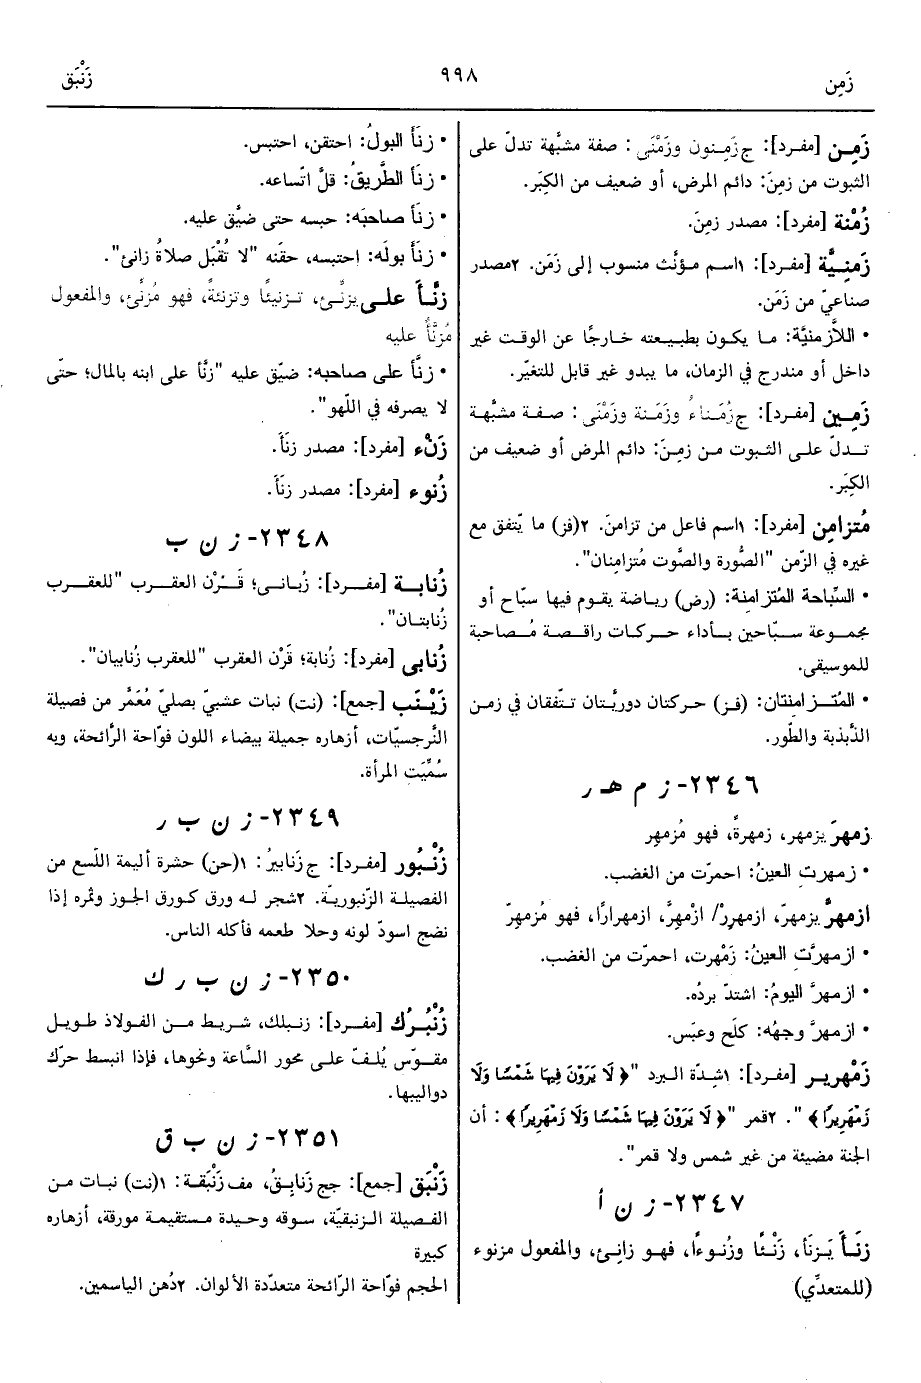 زَمِن
٩٩٨
زَنْبَق
زَمِن [مفرد]: ج زَمِنون وزَمْنَى: صفة مشبَّهة تدلّ على
الثبوت من زمِنَ: دائم المرض، أو ضعيف من الكِبَر.
زُمْنة [مفرد]: مصدر زمِنَ.
زَمنِيَّة [مفرد]: ١اسم مؤنَّث منسوب إلى زَمَن. ٢مصدر
صناعيّ من زَمَن.
• اللاَّزمنيَّة: ما يكون بطبيعته خارجًا عن الوقت غير
داخل أو مندرج في الزمان، ما يبدو غير قابل للتغيّر.
زَمِين [مفرد]: ج زُمَناءُ وزَمَنة وزَمْنَى: صفة مشبَّهة
تدلّ على الثبوت من زمِنَ: دائم المرض أو ضعيف من
الكِبَر.
مُتزامِن [مفرد]: ١اسم فاعل من تزامنَ. ٢(فز) ما يتّفق مع
غيره في الزّمن "الصُّورة والصَّوت مُتزامِنان".
• السِّباحة المُتزامِنة: (رض) رياضة يقوم فيها سبّاح أو
مجموعة سبّاحين بأداء حركات راقصة مُصاحبة
للموسيقى.
• المُتزامِنتان: (فز) حركتان دوريَّتان تتّفقان في زمن
الذَّبذبة والطَّور.
٢٣٤٦- ز م هـ ر
زمهرَ يزمهر، زمهرةً، فهو مُزمهِر
• زمهرتِ العينُ: احمرّت من الغضب.
ازمهرَّ يزمهرّ، ازمهرِرْ/ ازْمهِرَّ، ازمهرارًا، فهو مُزمهِرّ
• ازمهرَّتِ العينُ: زَمْهرت، احمرّت من الغضب.
• ازمهرَّ اليومُ: اشتدّ بردُه.
• ازمهرَّ وجهُه: كلَح وعبَس.
زَمْهرير [مفرد]: ١شِدّة البرد "﴿ لَا يَرَوْنَ فِيهَا شَمْسًا وَلَا
زَمْهَرِيرًا ﴾". ٢قمر "﴿ لَا يَرَوْنَ فِيهَا شَمْسًا وَلَا زَمْهَرِيرًا ﴾: أن
الجنة مضيئة من غير شمس ولا قمر".
٢٣٤٧- ز ن أ
زنَأَ يَزنَأ، زَنْئًا وزُنوءًا، فهو زانِئ، والمفعول مزنوء
(للمتعدِّي)
• زنَأ البولُ: احتقن، احتبس.
• زنَأ الطَّريقُ: قلَّ اتّساعه.
• زنَأ صاحبَه: حبسه حتى ضيَّق عليه.
• زنَأ بولَه: احتبسه، حقَنه "لا تُقْبَل صلاةُ زانئ".
زنَّأَ على يزنِّئ، تزنيئًا وتزنئةً، فهو مُزنِّئ، والمفعول
مُزنَّأ عليه
• زنَّأ على صاحبِه: ضيّق عليه "زنَّأ على ابنه بالمال؛ حتّى
لا يصرفه في اللّهو".
زَنْء [مفرد]: مصدر زنَأَ.
زُنوء [مفرد]: مصدر زنَأَ.
٢٣٤٨- ز ن ب
زُنابة [مفرد]: زُبانى؛ قَرْن العقرب "للعقرب
زنابتان".
زُنابى [مفرد]: زُنابة؛ قَرْن العقرب "للعقرب زُنابيان".
زَيْنَب [جمع]: (نت) نبات عشبيّ بصليّ مُعَمَّر من فصيلة
النَّرجسيّات، أزهاره جميلة بيضاء اللون فوّاحة الرّائحة، وبه
سُمِّيَت المرأة.
٢٣٤٩- ز ن ب ر
زُنْبُور [مفرد]: ج زَنابيرُ: ١(حن) حشرة أليمة اللّسع من
الفصيلة الزّنبوريّة. ٢شجر له ورق كورق الجوز وثمره إذا
نضج اسودّ لونه وحلا طعمه فأكله الناس.
٢٣٥٠- ز ن ب ر ك
زُنْبُرُك [مفرد]: زنبلك، شريط من الفولاذ طويل
مقوّس يُلفّ على محور السَّاعة ونحوها، فإذا انبسط حرّك
دواليبها.
٢٣٥١- ز ن ب ق
زَنْبَق [جمع]: جج زَنابِقُ، مف زَنْبَقة: ١(نت) نبات من
الفصيلة الزنبقيّة، سوقه وحيدة مستقيمة مورقة، أزهاره
كبيرة
الحجم فوّاحة الرّائحة متعدّدة الألوان. ٢دُهن الياسمين.